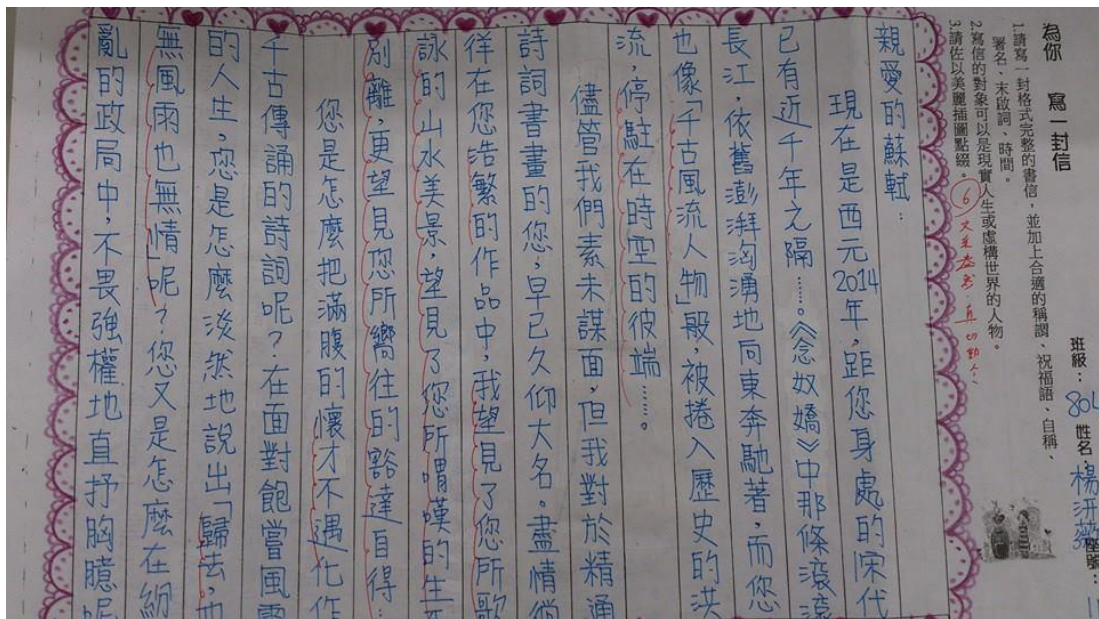 為你　寫一封信
1.請寫一封格式完整的書信，並加上合適的稱謂、祝福語、自稱、
署名、末啟詞、時間。
2.寫信的對象可以是現實人生或虛構世界的人物。
3.請佐以美麗插圖點綴。
班級：804 姓名：楊 座號：11
⑥文筆
親愛的蘇軾：
現在是西元2014年，距您身處的宋代
已有近千年之隔……。《念奴嬌》中那條滾滾
長江，依舊澎湃洶湧地向東奔馳著，而您
也像「千古風流人物」般，被捲入歷史的洪
流，停駐在時空的彼端……。
儘管我們素未謀面，但我對於精通
詩詞書畫的您，早已久仰大名。盡情徜
徉在您浩繁的作品中，我望見了您所歌
詠的山水美景，望見了您所喟嘆的生死
別離，更望見您所嚮往的豁達自得…
您是怎麼把滿腹的懷才不遇化作
千古傳誦的詩詞呢？在面對飽嘗風霜
的人生，您是怎麼淡然地說出「歸去，也
無風雨也無情」呢？您又是怎麼在紛
亂的政局中，不畏強權地直抒胸臆呢